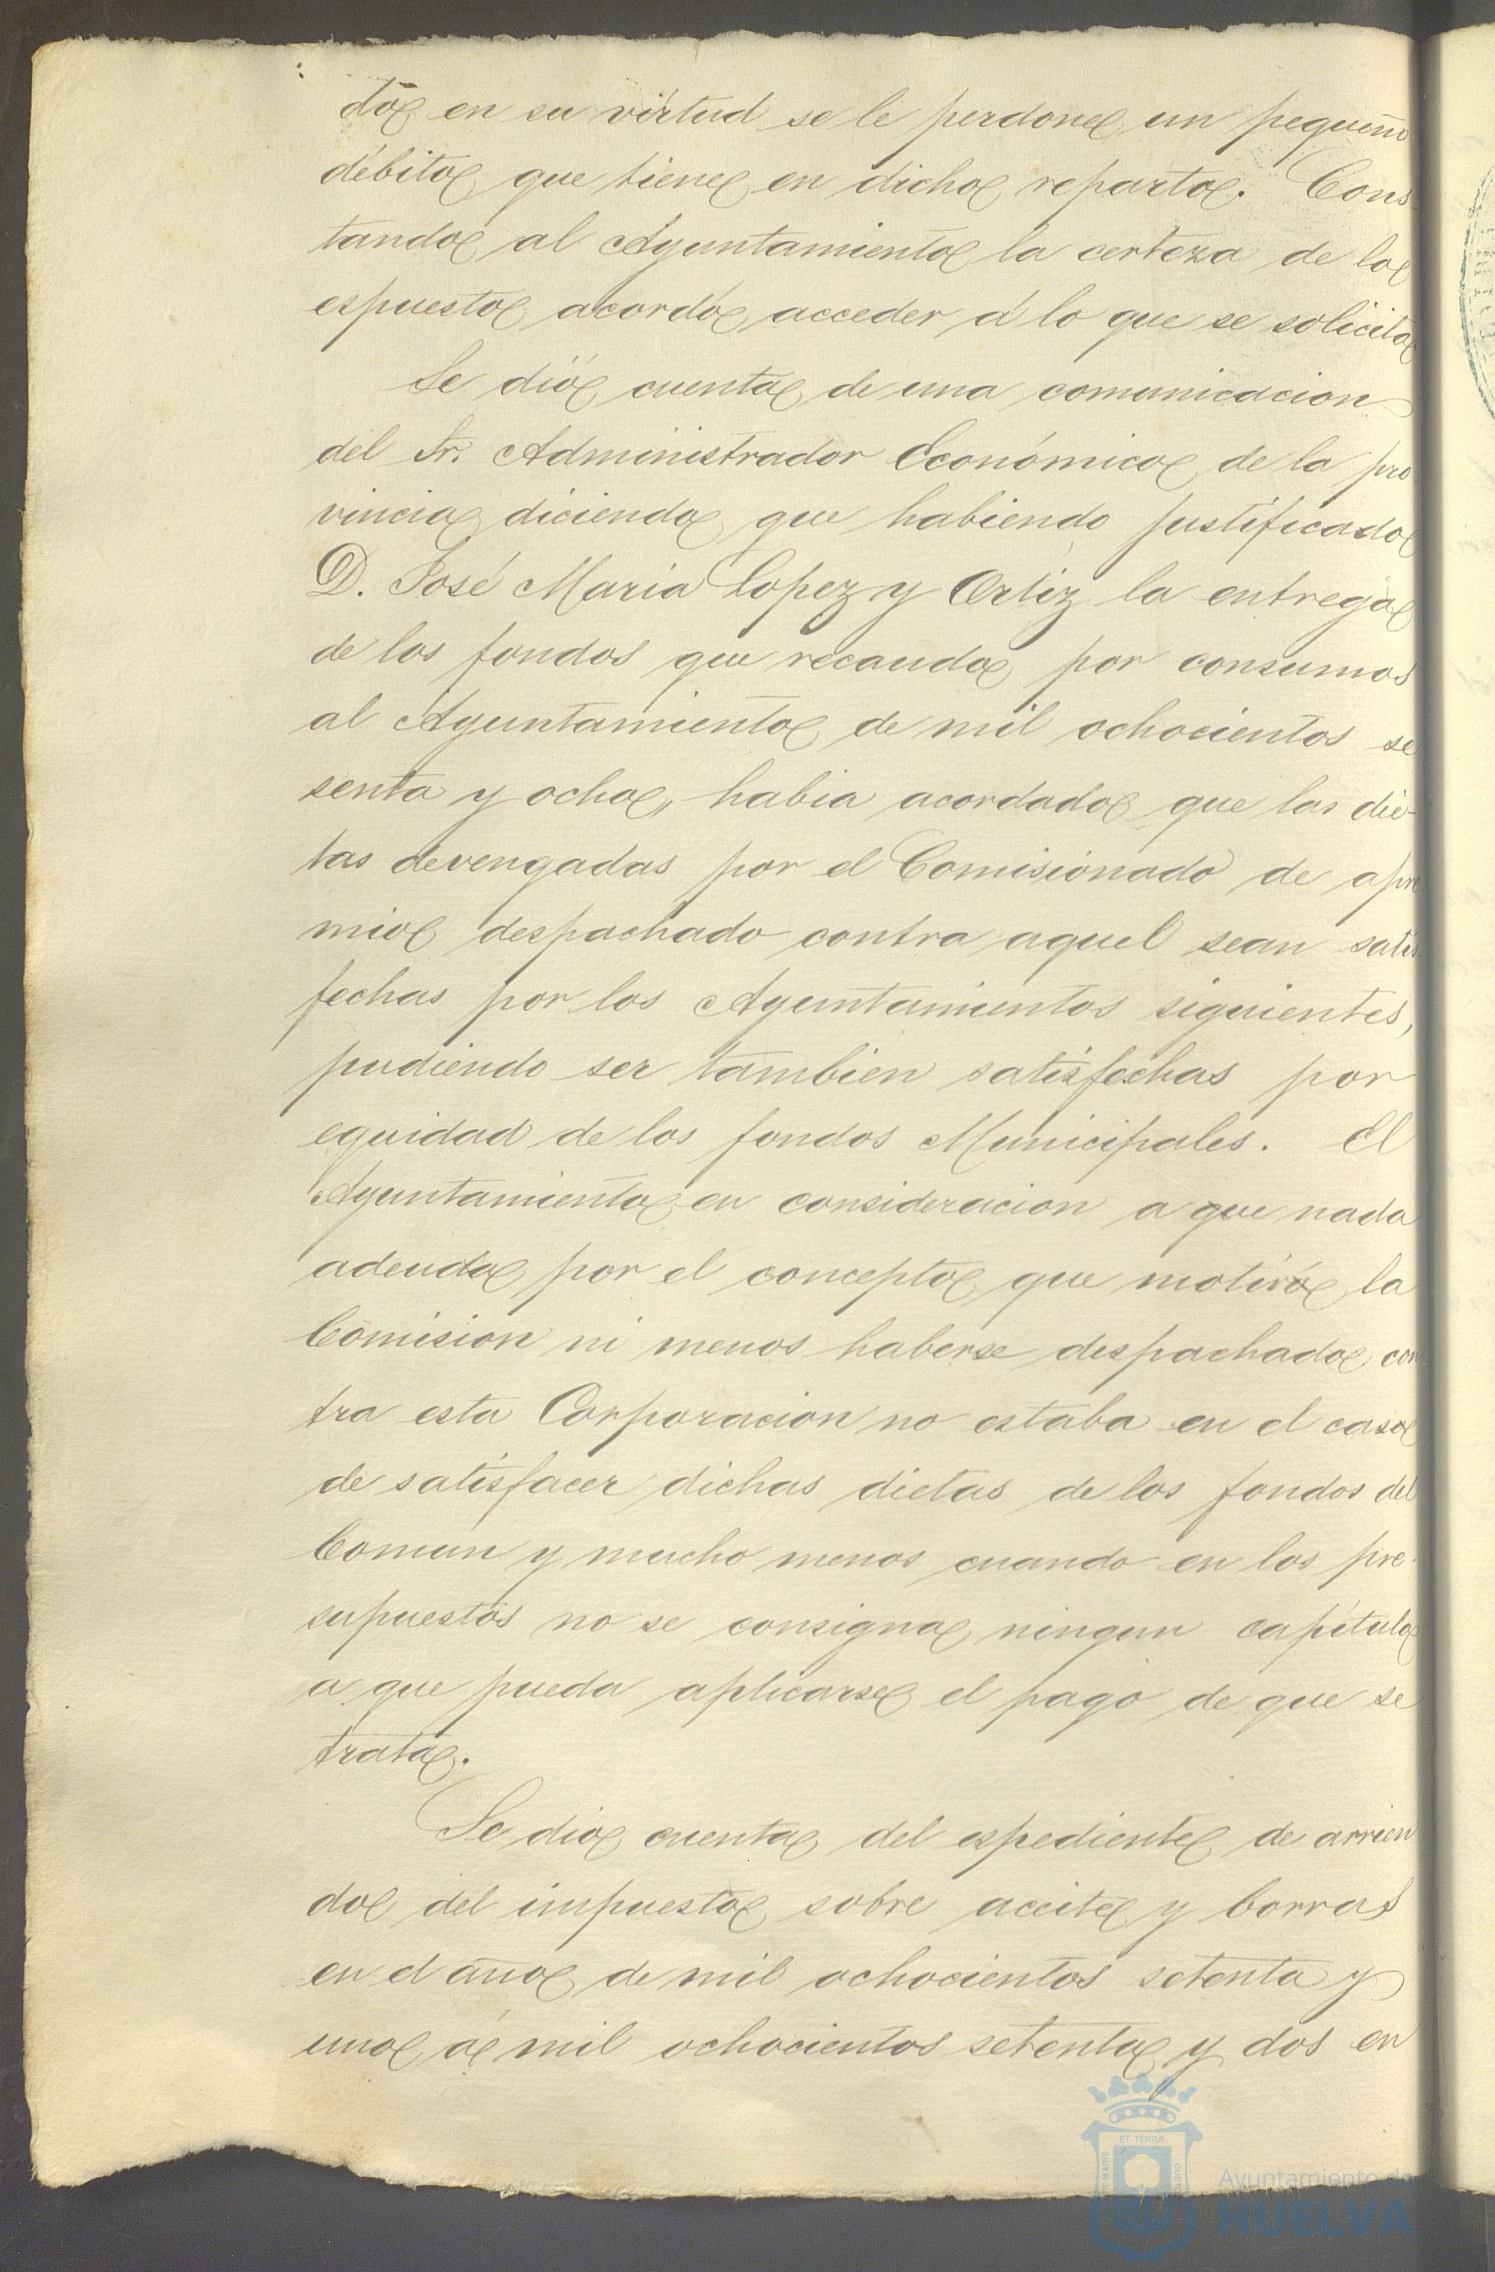 do en su virtud se le perdone un pequeño
débito que tiene en dicho reparto. Cons-
tando al Ayuntamiento la certeza de lo
espuesto acordó acceder á lo que se solicita
Se dió cuenta de una comunicacion
del Sr. Administrador Económico de la pro
vincia diciendo que habiendo justificado
D. José Maria Lopez y Ortiz la entrega
de los fondos que recaudo por consumos
al Ayuntamiento de mil ochocientos se
senta y ocho, habia acordado que las die-
tas devengadas por el Comisionado de apre
mio despachado contra aquel sean satis
fechas por los Ayuntamientos siguientes,
pudiendo ser tambien satisfechas por
equidad de los fondos Municipales. El
Ayuntamiento en consideracion a que nada
adeuda por el concepto que motivó la
Comision ni menos haberse despachado con
tra esta Corporacion no estaba en el caso
de satisfacer dichas dietas de los fondos del
Comun y mucho menos cuando en los pre-
supuestos no se consigna ningun capítulo
a que pueda aplicarse el pago de que se
trata.
Se dio cuenta del espediente de arrien
do del impuesto sobre aceite y borras
en el año de mil ochocientos setenta y
uno á mil ochocientos setenta y dos en
ET TERRÆ
MARIS
CUSTOS
Ayuntamiento de
HUELVA